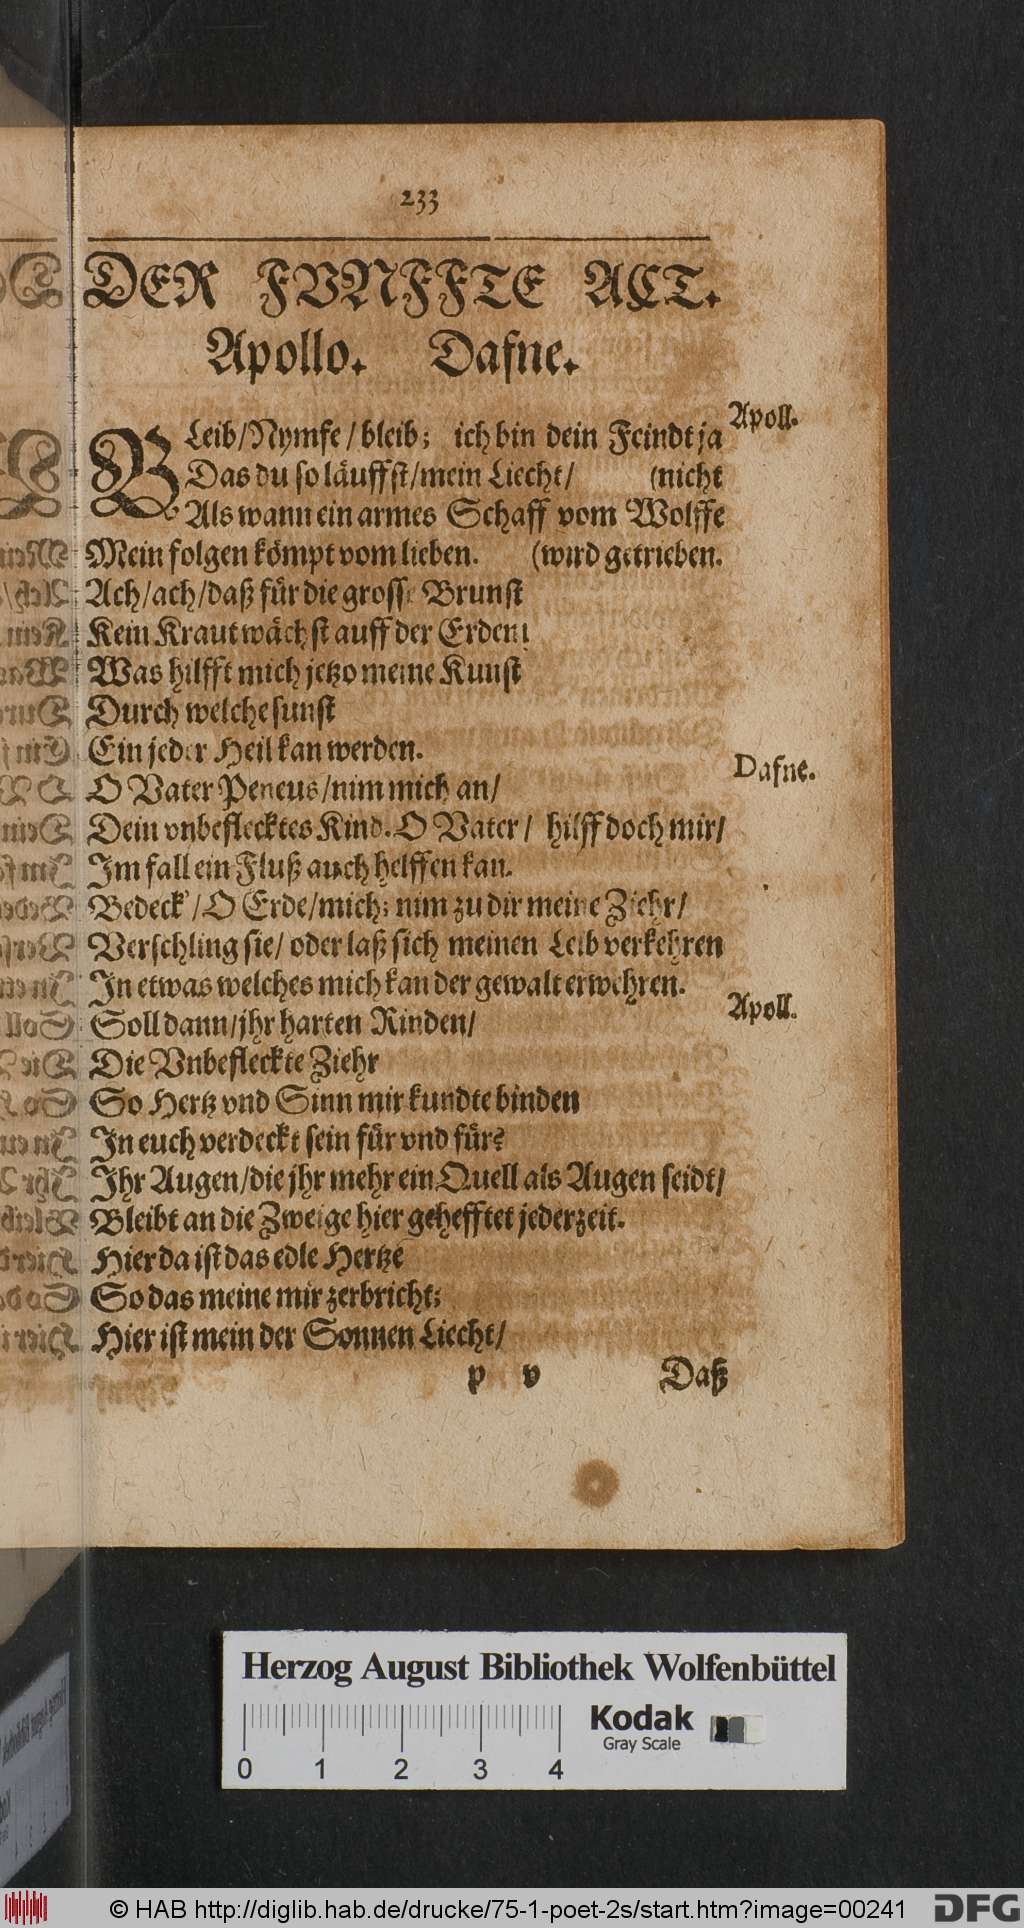 233
DER FVNFFTE ACT.
Apollo. Dafne.
Apoll.
BLeib/Nymfe/bleib; ich bin dein Feindt ja
Das du so läuffst/mein Liecht/ (nicht
Als wann ein armes Schaff vom Wolffe
Mein folgen kömpt vom lieben. (wird getrieben.
Ach/ach/daß für die grosse Brunst
Kein Kraut wächst auff der Erden;
Was hilfft mich jetzo meine Kunst
Durch welche sunst
Ein jeder Heil kan werden.
Dafne.
O Vater Peneus/nim mich an/
Dein vnbeflecktes Kind. O Vater/ hilff doch mir/
Im fall ein Fluß auch helffen kan.
Bedeck'/O Erde/mich; nim zu dir meine Ziehr/
Verschling sie/ oder laß sich meinen Leib verkehren
In etwas welches mich kan der gewalt erwehren.
Apoll.
Soll dann/jhr harten Rinden/
Die Vnbefleckte Ziehr
So Hertz vnd Sinn mir kundte binden
In euch verdeckt sein für vnd für?
Ihr Augen/die jhr mehr ein Quell als Augen seidt/
Bleibt an die Zweige hier gehefftet jederzeit.
Hier da ist das edle Hertze
So das meine mir zerbricht;
Hier ist mein der Sonnen Liecht/
p v Daß
Herzog August Bibliothek Wolfenbüttel
Kodak
Gray Scale
0 1 2 3 4
© HAB http://diglib.hab.de/drucke/75-1-poet-2s/start.htm?image=00241
DFG